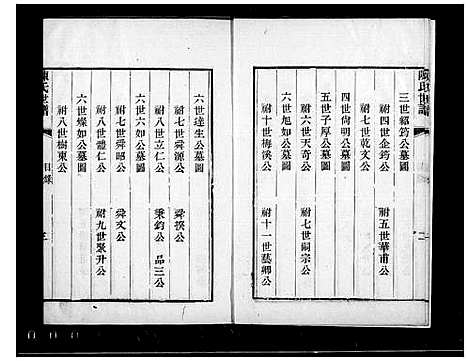 陳氏世譜
三世紹筠公墓圖
祔四世企筠公 祔五世華甫公
祔七世乾文公
四世尙明公墓圖
五世子厚公墓圖
祔六世天奇公 祔七世嗣宗公
六世旭如公墓圖
祔十世梅溪公 祔十一世藝卿公
二
六世達生公墓圖
祔七世舜源公 舜褀公
祔八世立仁公 秉鈞公 品三公
六世六如公墓圖
祔七世舜昭公 舜文公
祔八世體仁公 祔九世聚升公
六世燦如公墓圖
祔八世樹東公
陳氏世譜
目錄
三